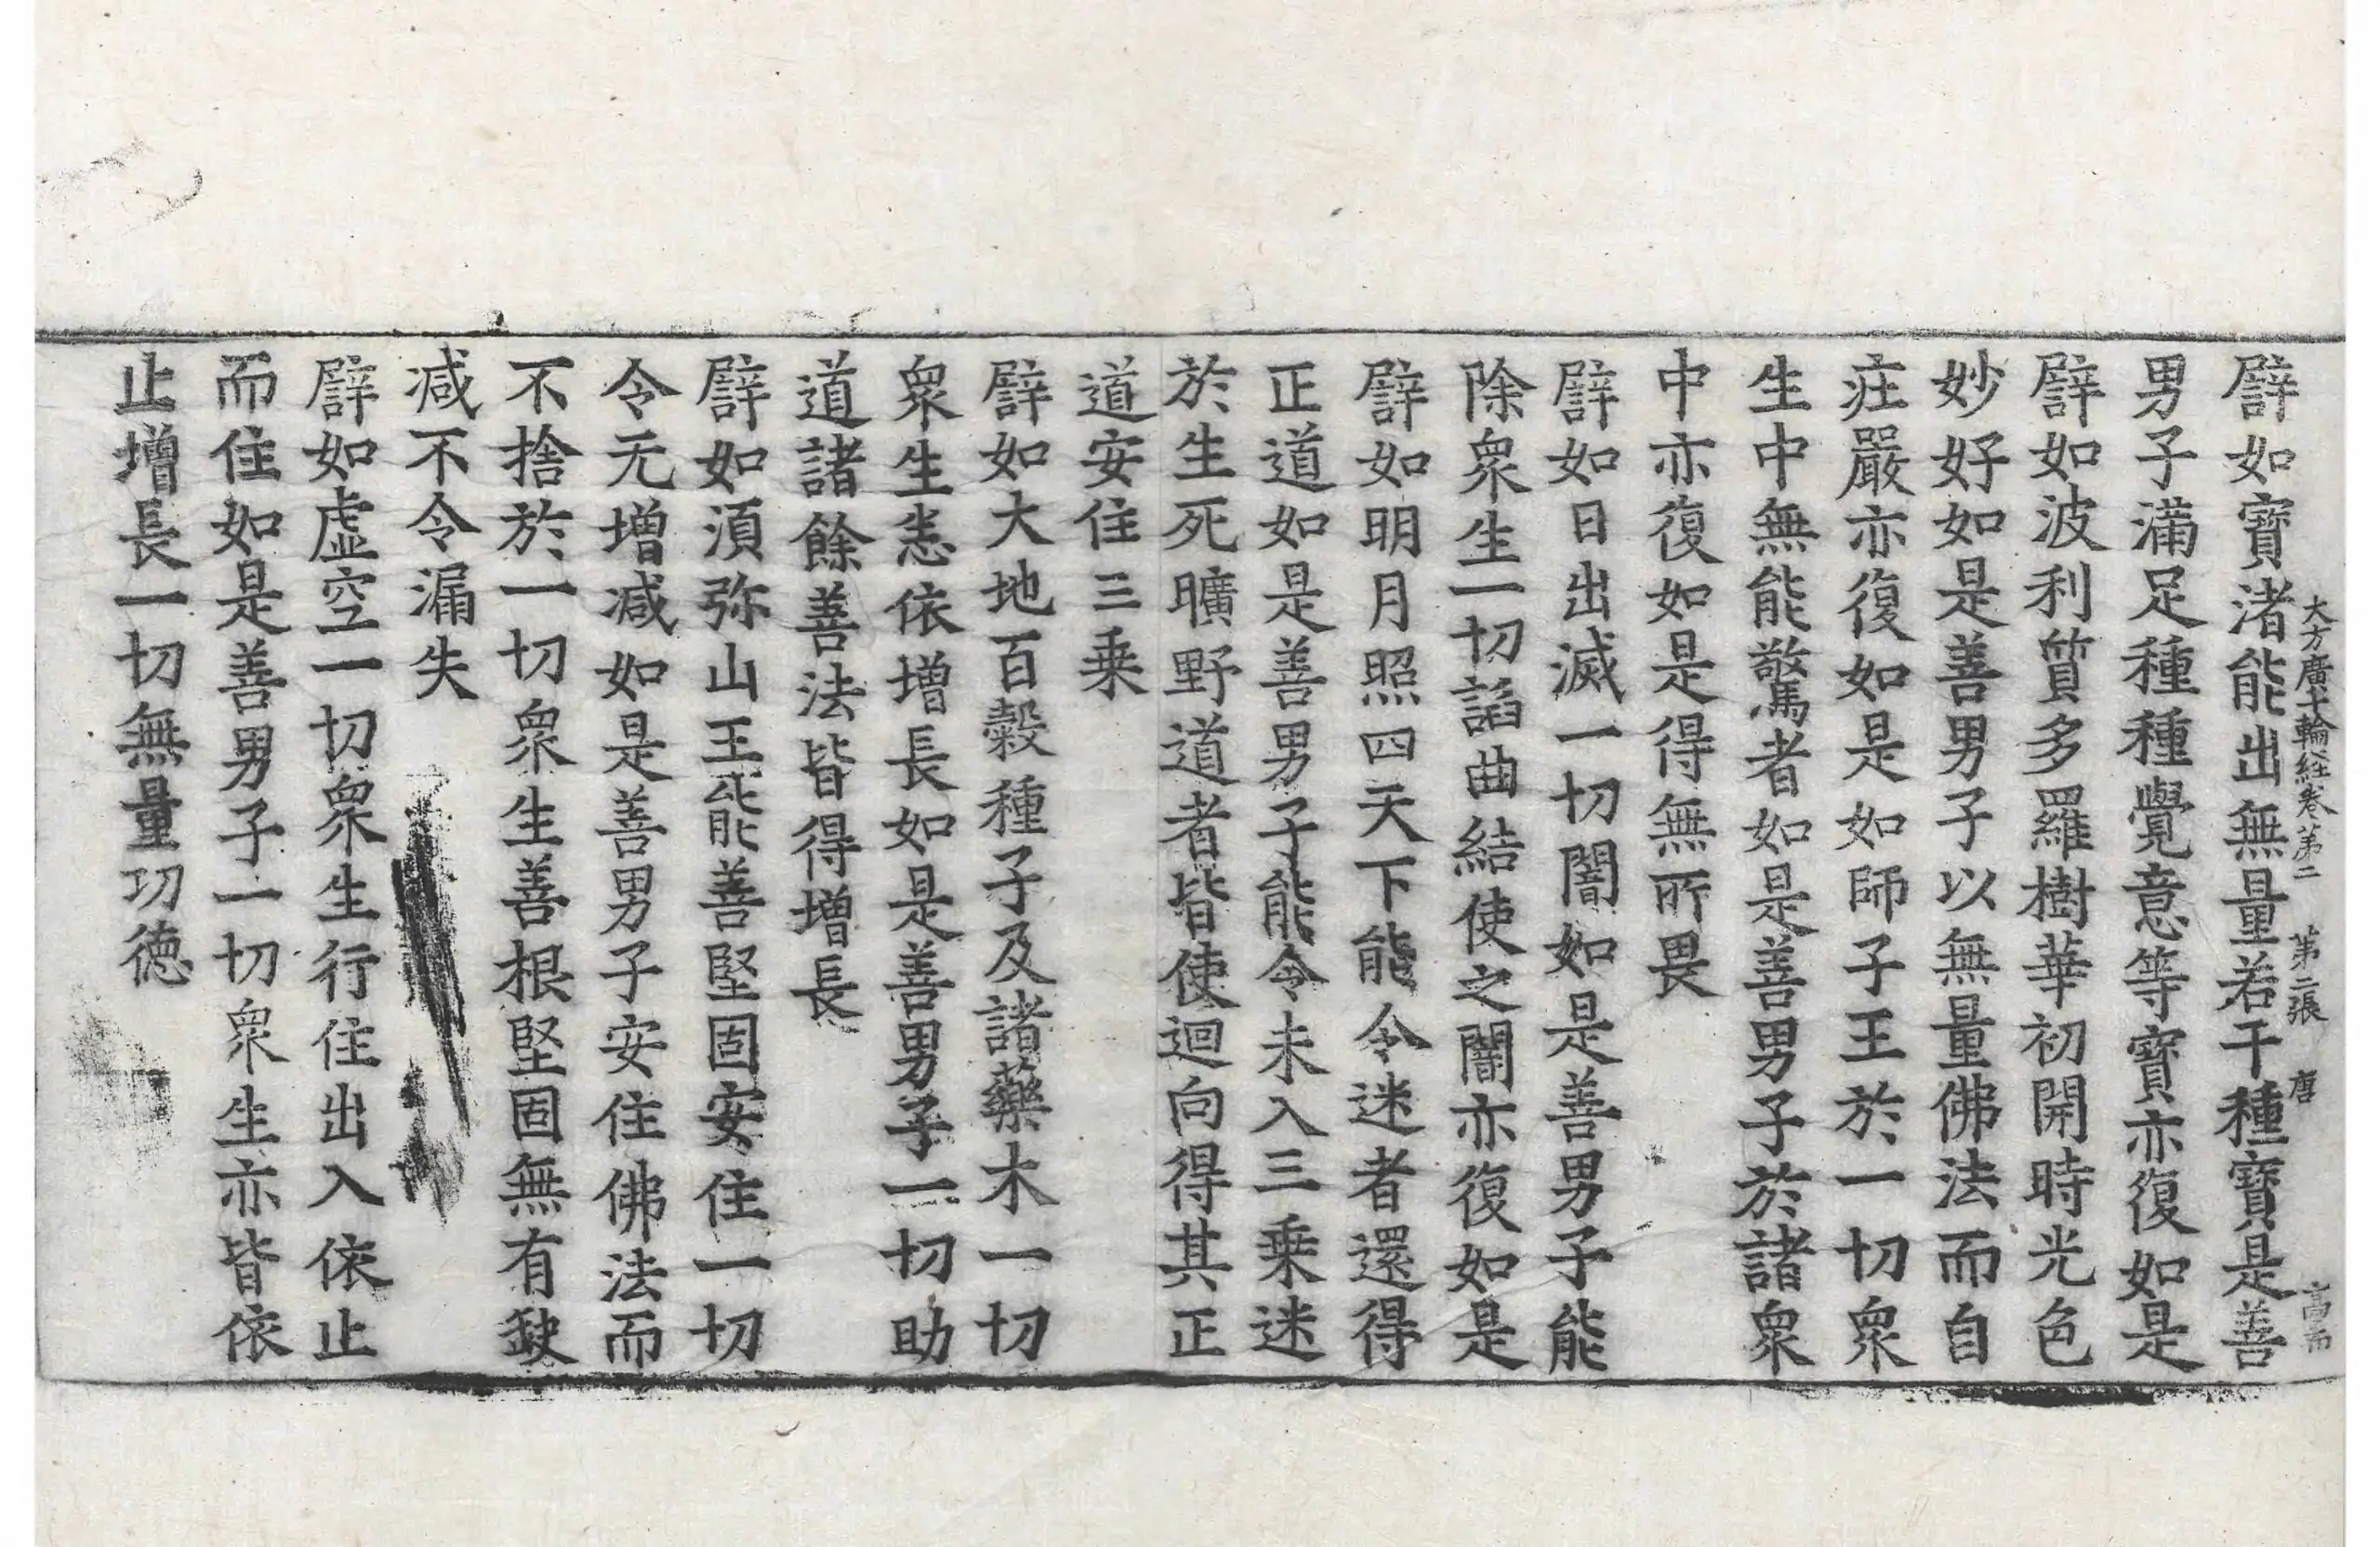 大方廣十輪経卷第二　第二張　唐　高而
譬如寶渚能出無量若干種寶是善
男子滿足種種覺意等寶亦復如是
譬如波利質多羅樹華初開時光色
妙好如是善男子以無量佛法而自
庄嚴亦復如是如師子王於一切衆
生中無能驚者如是善男子於諸衆
中亦復如是得無所畏
譬如日出滅一切闇如是善男子能
除衆生一切諂曲結使之闇亦復如是
譬如明月照四天下能令迷者還得
正道如是善男子能令未入三乗迷
於生死曠野道者皆使迴向得其正
道安住三乗
譬如大地百穀種子及諸藥木一切
衆生恙依增長如是善男子一切助
道諸餘善法皆得增長
譬如湏弥山王能善堅固安住一切
令无增减如是善男子安住佛法而
不捨於一切衆生善根堅固無有缺
减不令漏失
譬如虛空一切衆生行住出入依止
而住如是善男子一切衆生亦皆依
止增長一切無量功德